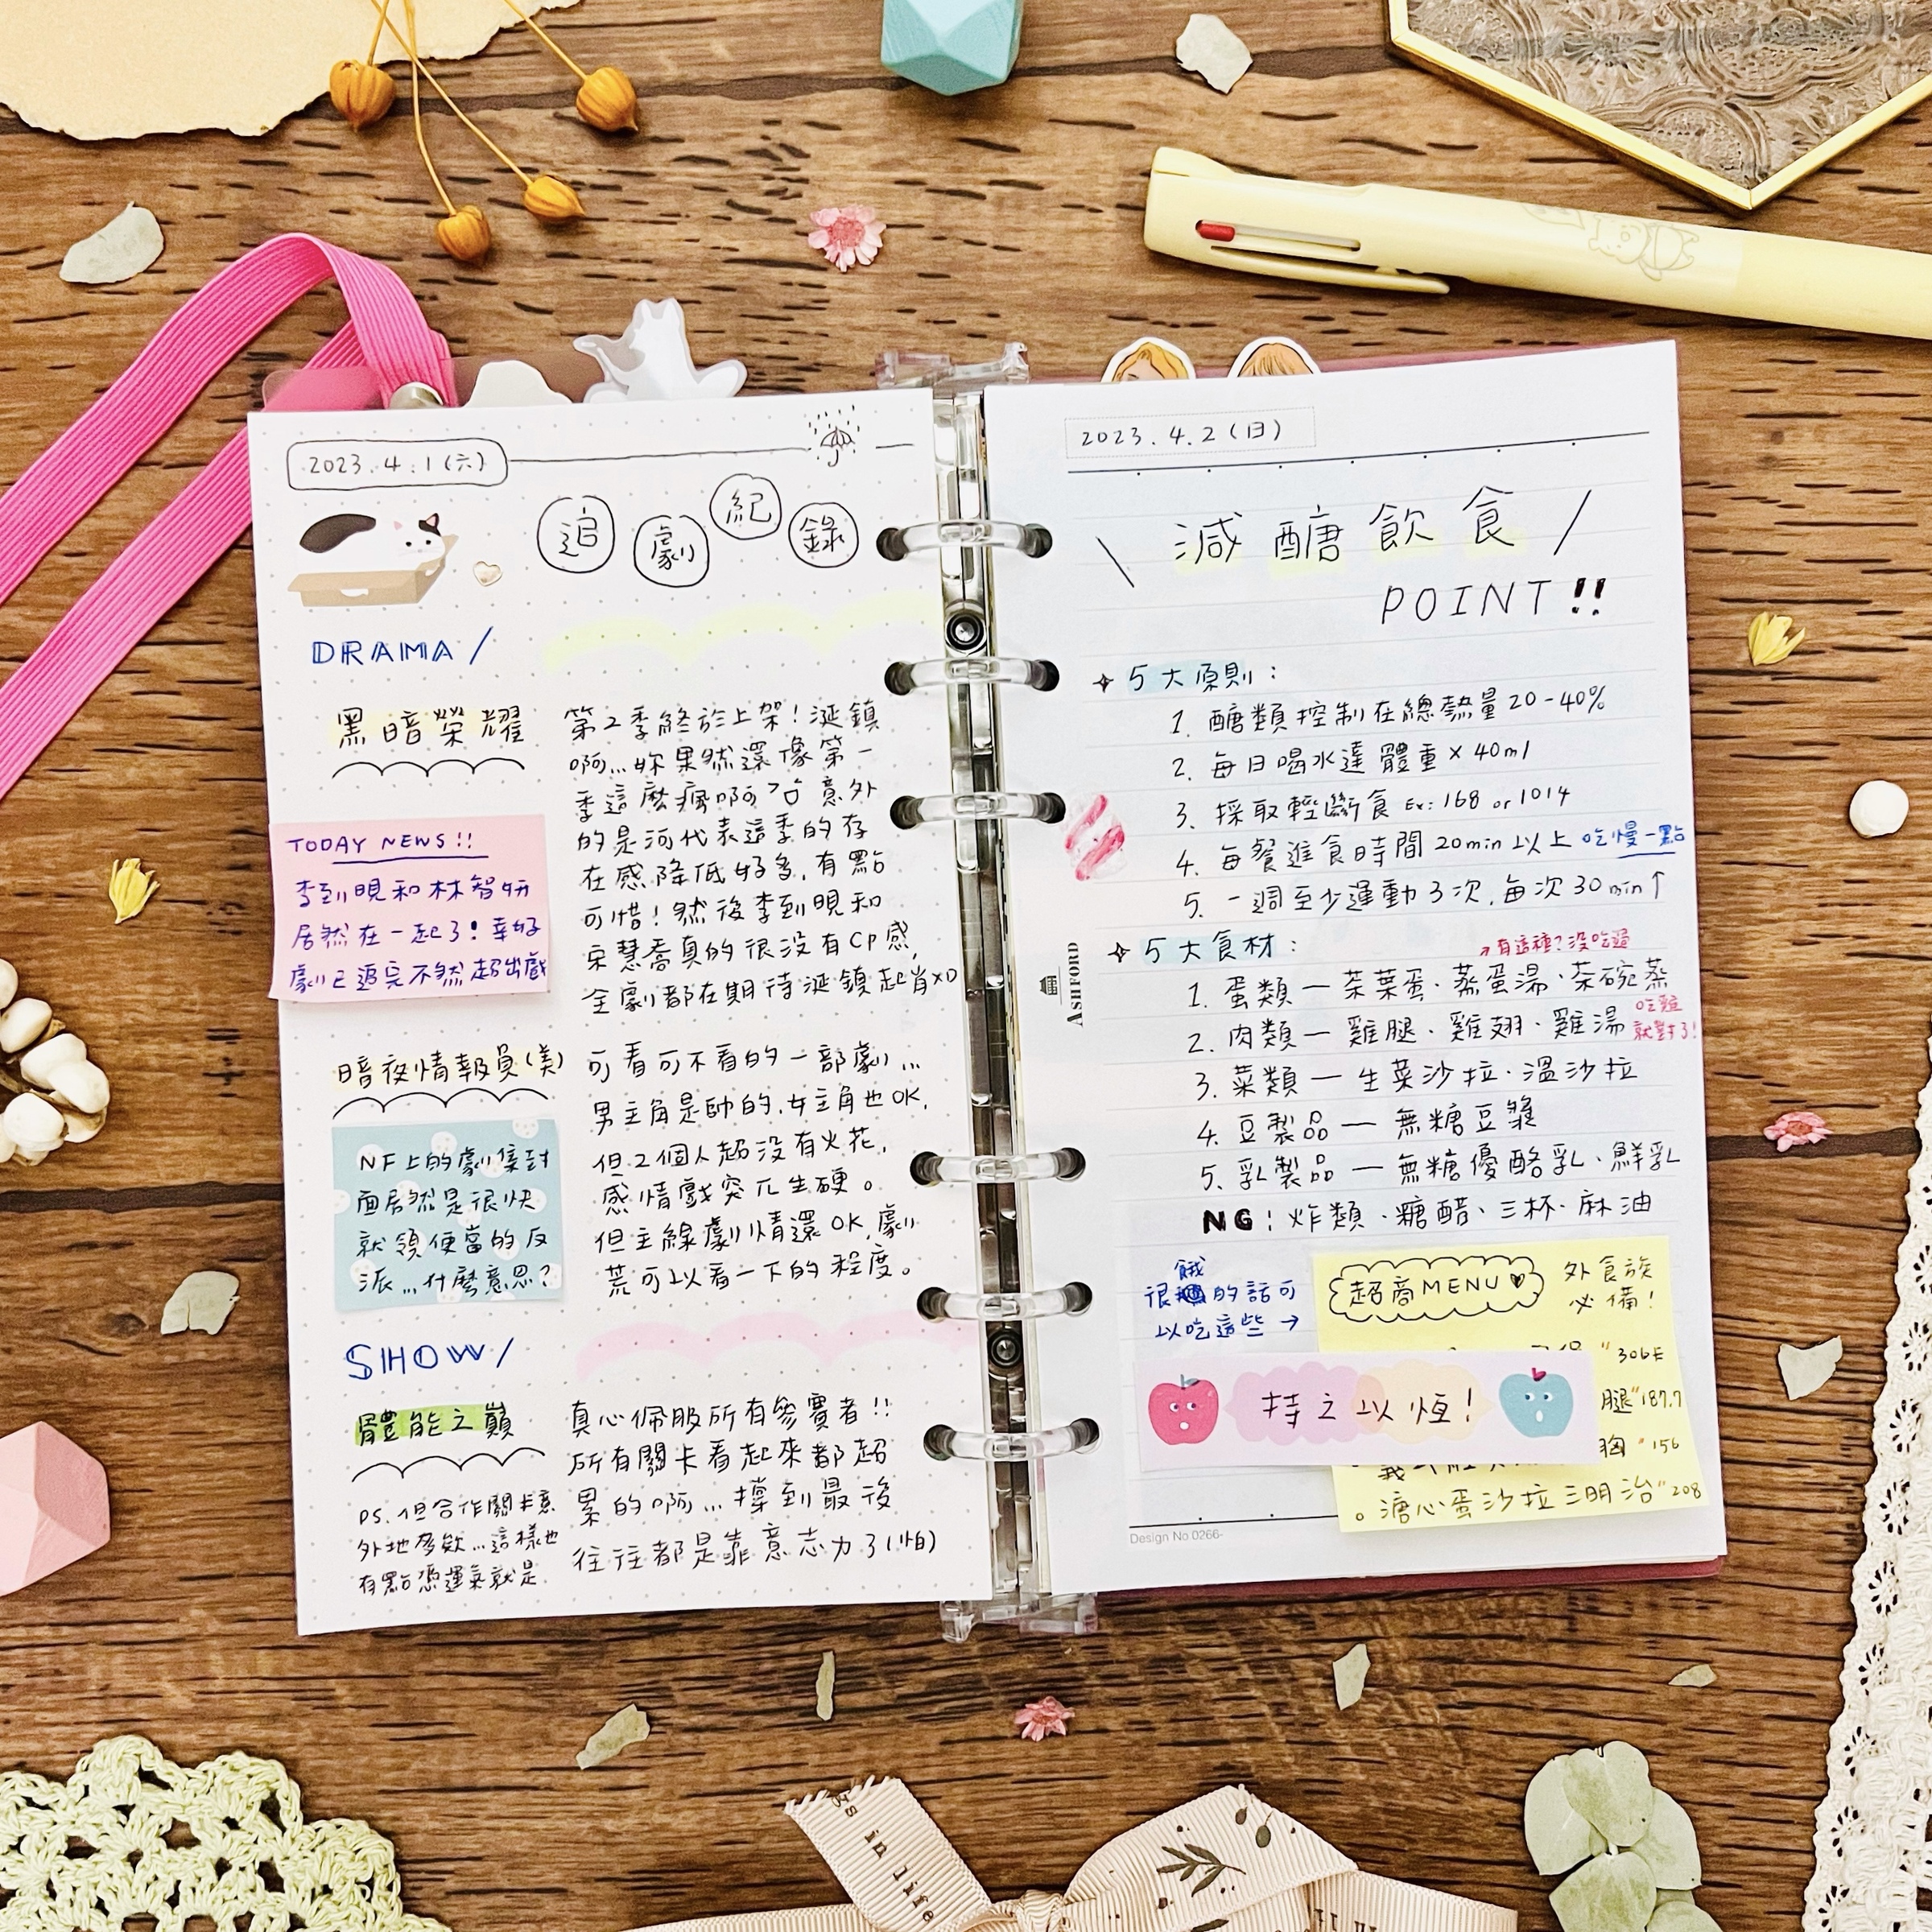 2023.4.1(六)
追劇紀錄
DRAMA/
黑暗榮耀
第2季終於上架!涎鎮
啊...妳果然還像第一
季這麼瘋啊 意外
的是河代表這季的存
在感降低好多,有點
可惜!然後李到晛和
宋慧喬真的很沒有CP感,
全劇都在期待涎鎮起肖XD
TODAY NEWS!!
李到晛和林智妍
居然在一起了!幸好
劇已追完不然超出戲
暗夜情報員(美)
可看可不看的一部劇...
男主角是帥的,女主角也OK,
但2個人超沒有火花,
感情戲突兀生硬。
但主線劇情還OK,劇
荒可以看一下的程度。
NF上的劇集封
面居然是很快
就領便當的反
派...什麼意思?
SHOW/
體能之巔
真心佩服所有參賽者!!
所有關卡看起來都超
累的啊...撐到最後
往往都是靠意志力了(怕)
PS.但合作關卡意
外地多欸...這樣也
有點憑運氣就是
2023.4.2(日)
\ 減醣飲食 /
POINT!!
5大原則:
1. 醣類控制在總熱量20-40%
2. 每日喝水達體重×40ml
3. 採取輕斷食 Ex:168 or 1014
4. 每餐進食時間20min以上 吃慢一點
5. 一週至少運動3次,每次30min↑
5大食材:
↗有這種?沒吃過
1. 蛋類—茶葉蛋·蒸蛋湯·茶碗蒸
2. 肉類—雞腿·雞翅·雞湯
吃雞
就對了!
3. 菜類—生菜沙拉·溫沙拉
4. 豆製品—無糖豆漿
5. 乳製品—無糖優酪乳·鮮乳
NG:炸類·糖醋·三杯·麻油
ASHFORD
餓
很的話可
以吃這些→
超商MENU♥
外食族
必備!
306卡
腿"187.7
胸"156
溏心蛋沙拉三明治"208
持之以恆!
Design No.0266-
gs in life